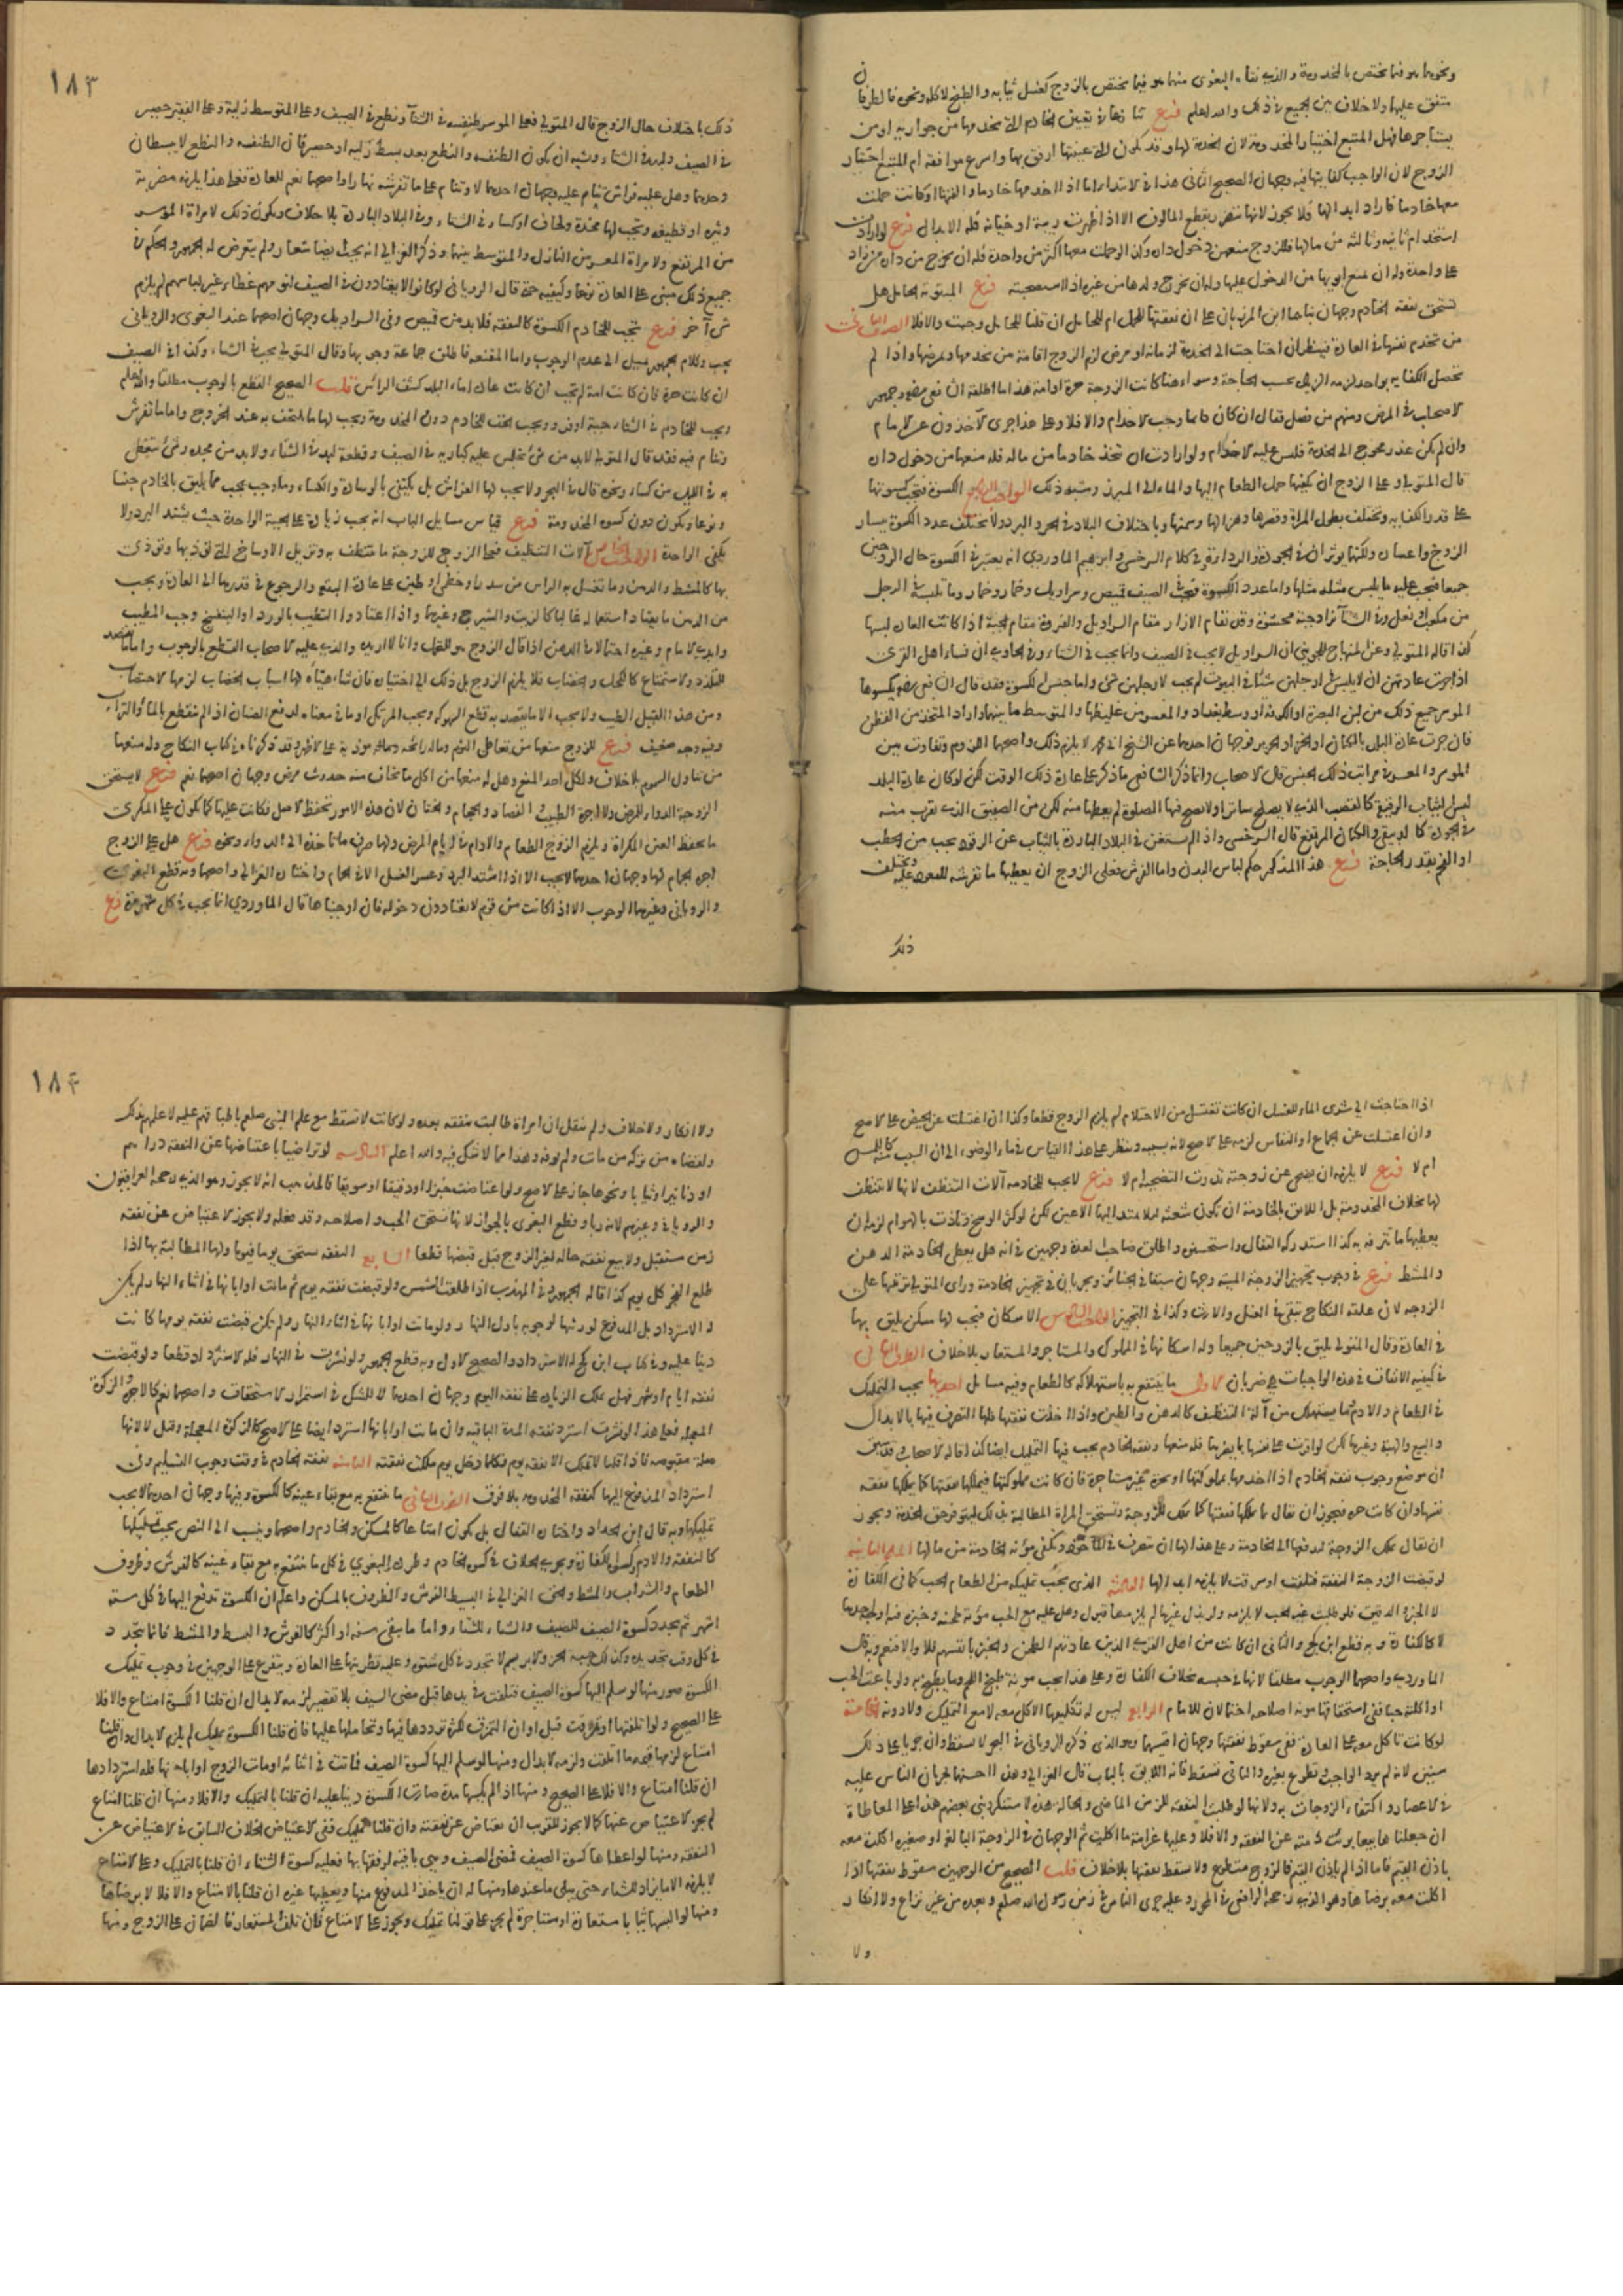 ونحوهما هو فيما يختص بالمخدومة والذي نفاه البغوي منهما هو فيما يختص بالزوج كغسل ثيابه والطبخ لاكله ونحوه فالطرفان
متفق عليهما ولا خلاف بين الجميع في ذلك والله اعلم فرع تنازعا في تعيين الخادم التي تخدمها من جواريه او من
يستاجرها فهل المتبع اختيار المخدومة لان الخدمة لها وقد تكون التي عينتها ارفق بها واسرع موافقة ام المتبع اختيار
الزوج لان الواجب كفايتها فيه وجهان الصحيح الثاني هذا في الابتداء اما اذا اخدمها خادما والفتها او كانت حملت
معها خادما فاراد ابدالها فلا يجوز لانها تتضرر بقطع المالوف الا اذا ظهرت ريبة او خيانة فله الابدال فرع لو ارادت
استخدام ثانية وثالثة من مالها فللزوج منعهن دخول داره وكذا لو حملت معها اكثر من واحدة فله ان يخرج من داره من زاد
على واحدة وله ان يمنع ابويها من الدخول عليها وله ان يخرج ولدها من غيره اذا استصحبته فرع المبتوتة الحامل هل
تستحق نفقة الخادم وجهان بناهما ابن المرزبان على ان نفقتها للحمل ام للحامل ان قلنا للحامل وجبت والا فلا الصنف الثاني
من تخدم نفسها في العادة فينظر ان احتاجت الى الخدمة لزمانة او مرض لزم الزوج اقامة من يخدمها ويمرضها واذا لم
تحصل الكفاية بواحد لزمه الزيادة بحسب الحاجة وسواء هنا كانت الزوجة حرة او امة هذا ما اطلقه الشافعي رضه وجمهور
الاصحاب في المرض ومنهم من فصل فقال ان كان دائما وجب الاخدام والا فلا وعلى هذا جرى الآخذون عن الامام
وان لم يكن عذر محوج الى الخدمة فليس عليه الاخدام ولو ارادت ان تتخذ خادما من ماله فله منعها من دخول داره
قال المتولي وعلى الزوج ان يكفيها حمل الطعام اليها والماء الى المبرز وشبه ذلك الواجب الرابع الكسوة فتجب كسوتها
على قدر الكفاية وتختلف بطول المراة وقصرها وهزالها وسمنها وباختلاف البلاد في الحر والبرد ولا تختلف عدد الكسوة بيسار
الزوج واعساره ولكنهما يؤثران في الجودة والرداءة وفي كلام السرخسي وابراهيم الماوردي انه يعتبر في الكسوة حال الزوجين
جميعا فيجب عليه ما يلبس مثله مثلها واما عدد الكسوة فيجب في الصيف قميص وسراويل وخمار وما تلبسه في الرجل
من مكعب او نعل وفي الشتاء تزاد جبة محشوة وقد يقام الازار مقام السراويل والفروة مقام الجبة اذا كانت العادة لبسها
كذا قاله المتولي وعن المنهاج للجويني ان السراويل لا يجب في الصيف وانما يجب في الشتاء وفي الحاوي ان نساء اهل القرى
اذا جرت عادتهن ان لا يلبسن في ارجلهن شيئا في البيوت لم يجب لارجلهن شيء واما جنس الكسوة فقد قال الشافعي رضه يكسوها
الموسر جميع ذلك من لين البصرة او الكوفة او وسط بغداد والمعسر من غليظها والمتوسط ما بينهما واراد المتخذ من القطن
فان جرت عادة البلد بالكتان او الخز او الحرير فوجهان احدهما عن الشيخ ابي محمد لا يلزم ذلك واصحهما اللزوم وتفاوت بين
الموسر والمعسر في مراتب ذلك الجنس قال الاصحاب وانما ذكر الشافعي ما ذكر على عادة ذلك الوقت لكن لو كان عادة البلد
لبس الثياب الرفيعة كالقصب الذي لا يصلح ساترا ولا يصح فيها الصلوة لم يعطها منه لكن من الصفيق الذي يقرب منه
في الجودة كالدبيقي والكتان المرتفع قال السرخسي واذا لم تستغن في البلاد الباردة بالثياب عن الوقود يجب من الحطب
او الفحم بقدر الحاجة فرع هذا المذكور حكم لباس البدن واما الفرش فعلى الزوج ان يعطيها ما تفرشه للقعود عليه ويختلف
ذلك
١٨٣
ذلك باختلاف حال الزوج قال المتولي فعلى الموسر طنفسة في الشتاء ونطع في الصيف وعلى المتوسط زلية وعلى الفقير حصير
في الصيف ولبد في الشتاء ويشبه ان تكون الطنفسة والنطع بعد بسط زلية او حصير فان الطنفسة والنطع لا يبسطان
وحدهما وهل عليه فراش تنام عليه وجهان احدهما لا وتنام على ما تفرشه نهارا واصحهما نعم للعادة فعلى هذا يلزمه مضربة
وثيرة او قطيفة وتجب لها مخدة ولحاف او كساء في الشتاء وفي البلاد الباردة بلا خلاف ويكون ذلك لامراة الموسر
من المرتفع ولامراة المعسر من النازل والمتوسط بينهما وذكر الغزالي انه يجب ايضا شعار ولم يتعرض له الجمهور والحكم في
جميع ذلك مبني على العادة نوعا وكيفية حتى قال الروياني لو كانوا لا يعتادون في الصيف لنومهم غطاء غير لباسهم لم يلزم
شيء آخر فرع تجب للخادم الكسوة كالنفقة فلا بد من قميص وفي السراويل وجهان اصحهما عند البغوي والروياني
يجب وكلام الجمهور يميل الى عدم الوجوب واما المقنعة فاطلق جماعة وجوبها وقال المتولي يجب في الشتاء وكذا في الصيف
ان كانت حرة فان كانت امة لم تجب ان كانت عادة اماء البلد كشف الرأس قلت الصحيح القطع بالوجوب مطلقا والله اعلم
ويجب للخادم في الشتاء جبة او فرو ويجب الخف للخادم دون المخدومة ويجب لها ما تلتحف به عند الخروج واما ما تفرش
وتنام فيه فقد قال المتولي لا بد من شيء تجلس عليه كبارية في الصيف وقطعة لبد في الشتاء ولا بد من مخدة وشيء تتغطى
به في الليل من كساء ونحوه قال في البحر ولا يجب لها الفراش بل يكتفي بالوسادة والكساء وما وجب يجب مما يليق بالخادم جنسا
ونوعا ويكون دون كسوة المخدومة فرع قياس مسايل الباب انه يجب زيادة على الجبة الواحدة حيث يشتد البرد ولا
يكفي الواحدة الواجب الخامس آلات التنظيف فعلى الزوج للزوجة ما تنتظف به وتزيل الاوساخ التي تؤذيها وتؤذي
بها كالمشط والدهن وما تغسل به الراس من سدر او خطمي او طين على عادة البقعة والرجوع في قدرها الى العادة ويجب
من الدهن ما يعتاد استعماله غالبا كالزيت والشيرج وغيرهما واذا اعتادوا التطيب بالورد او البنفسج وجب المطيب
وابدى الامام وغيره احتمالا في الدهن اذا قال الزوج هو للتجمل وانا لا اريده والذي عليه الاصحاب القطع بالوجوب واما ما يقصد
للتلذذ والاستمتاع كالكحل والخضاب فلا يلزم الزوج بل ذلك الى اختياره فان شاء هيأه لها اسباب الخضاب لزمها الاختضاب
ومن هذا القبيل الطيب ولا يجب الا ما يقصد به قطع السهوكة ويجب المرتك او ما في معناه لدفع الصنان اذا لم ينقطع بالماء والتراب
وفيه وجه ضعيف فرع للزوج منعها من تعاطي الثوم وماله رائحة مؤذية على الاظهر وقد ذكرناه في كتاب النكاح وله منعها
من تناول السموم بلا خلاف ولكل احد المنع وهل له منعها من اكل ما تخاف منه حدوث مرض وجهان اصحهما نعم فرع لا تستحق
الزوجة الدواء للمرض ولا اجرة الطبيب والفصاد والحجام والختان لان هذه الامور تحفظ الاصل فكانت عليها كما تكون على المكري
ما يحفظ العين المكراة ويلزم الزوج الطعام والادام في ايام المرض ولها صرفه ما تاخذه الى الدواء ونحوه فرع هل على الزوج
اجرة الحمام لها وجهان احدهما لا يجب الا اذا اشتد البرد وعسر الغسل الا في الحمام واختاره الغزالي واصحهما وبه قطع البغوي
والروياني وغيرهما الوجوب الا اذا كانت من قوم لا يعتادون دخوله فان اوجبناها قال الماوردي انما يجب في كل شهر مرة فرع
اذا احتاجت الى شرى الماء للغسل ان كانت تغتسل من الاحتلام لم يلزم الزوج قطعا وكذا ان اغتسلت عن الحيض على الاصح
وان اغتسلت عن الجماع او النفاس لزمه على الاصح لانه بسببه وينظر على هذا القياس في ماء الوضوء الى ان السبب منه كاللمس
ام لا فرع لا يلزمه ان يضحي عن زوجته نذرت التضحية ام لا فرع لا يجب للخادمة آلات التنظف لانها لا تتنظف
لها بخلاف المخدومة بل اللائق بالخادمة ان تكون شعثة لئلا يمتد اليها الاعين لكن لو كثر الوسخ وتاذت بالهوام لزمه ان
يعطيها ما تترفه به كذا استدركه القفال واستحسن واطلق صاحب العدة وجهين في انه هل يعطى الخادمة الدهن
والمشط فرع في وجوب تجهيز الزوجة الميتة وجهان سبقا في الجنائز ويجريان في تجهيز الخادمة وراى المتولي ترتيبهما على
الزوجة لان علقة النكاح تبقى في الغسل والارث وكذا في التجهيز الواجب السادس الاسكان فيجب لها سكن يليق بها
في العادة وقال المتولي يليق بالزوجين جميعا وله اسكانها في المملوك والمستاجر والمستعار بلا خلاف الطرف الثاني
في كيفية الانفاق في هذه الواجبات هي ضربان الاول ما ينتفع به باستهلاكه كالطعام وفيه مسايل احديها يجب التمليك
في الطعام والادم وما يستهلك من آلة التنظيف كالدهن والطين واذا اخذت نفقتها فلها التصرف فيها بالابدال
والبيع والهبة وغيرها لكن لو اقترت على نفسها بما يضرها فله منعها ونفقة الخادم يجب فيها التمليك ايضا كذا قاله الاصحاب وقد سبق
ان موضع وجوب نفقة الخادم اذا اخدمها مملوكتها او حرة غير مستاجرة فان كانت مملوكتها فيملكها نفقتها كما يملكها نفقة
نفسها وان كانت حرة فيجوز ان يقال تملكها نفقتها كما تملك للزوجة وتستحق المراة المطالبة بذلك ليتوفر حق الخدمة ويجوز
ان يقال تملك الزوجة لتدفعها الى الخادمة وعلى هذا لها ان تتصرف في الماخوذ وتكفي مؤنة الخادمة من مالها المسألة الثانية
لو قبضت الزوجة النفقة فتلفت او سرقت لا يلزمه ابدالها الثالثة الذي يجب تمليكه من الطعام الحب كما في الكفارة
لا الخبز والدقيق فلو طلبت غير الحب لا يلزمه ولو بذل غيره لم يلزمها قبوله وهل عليه مع الحب مؤنة طحنه وخبزه فيه اوجه احدها
لا كالكفارة وبه قطع ابن كج والثاني ان كانت من اهل القرى الذين عادتهم الطحن والخبز بانفسهم فلا والا فنعم وبه قال
الماوردي واصحهما الوجوب مطلقا لانها في حبسه بخلاف الكفارة وعلى هذا يجب مؤنة طبخ اللحم وما يطبخ به ولو باعت الحب
او اكلته حبا ففي استحقاقها مؤنة اصلاحه احتمالان للامام الرابع ليس له تكليفها الاكل معه لا مع التمليك ولا دونه الخامسة
لو كانت تاكل معه على العادة ففي سقوط نفقتها وجهان اقيسهما وهو الذي ذكره الروياني في البحر لا تسقط وان جريا على ذلك
سنين لانه لم يؤد الواجب وتطوع بغيره والثاني تسقط فانه اللايق بالباب قال الغزالي وهذا احسنهما لجريان الناس عليه
في الاعصار واكتفاء الزوجات به ولانها لو طلبت النفقة للزمن الماضي والحالة هذه لاستنكر وبنى بعضهم هذا على المعاطاة
ان جعلناها بيعا برئت ذمته عن النفقة والا فلا وعليها غرامة ما اكلت ثم الوجهان في الزوجة البالغة او صغيرة اكلت معه
باذن القيم فاما اذا لم ياذن القيم فالزوج متطوع ولا تسقط نفقتها بلا خلاف قلت الصحيح من الوجهين سقوط نفقتها اذا
اكلت معه برضاها وهو الذي رجحه الرافعي في المحرر وعليه جرى الناس في زمن رسول الله صلعم وبعده من غير نزاع ولا انكار
ولا
١٨٤
ولا انكار ولا خلاف ولم ينقل ان امراة طالبت بنفقة بعده ولو كانت لا تسقط مع علم النبي صلعم باطباقهم عليه لاعلمهم بذلك
ولقضاه من تركة من مات ولم يوفه وهذا مما لا شك فيه والله اعلم السادسة لو تراضيا باعتياضها عن النفقة دراهم
او دنانير او ثيابا ونحوها جاز على الاصح ولو اعتاضت خبزا او دقيقا او سويقا فالمذهب انه لا يجوز وهو الذي رجحه العراقيون
والروياني وغيرهم لانه ربا وقطع البغوي بالجواز لانها تستحق الحب واصلاحه وقد فعله ولا يجوز الاعتياض عن نفقة
زمن مستقبل ولا بيع نفقة حالة لغير الزوج قبل قبضها قطعا السابع النفقة يستحق يوما فيوما ولها المطالبة بها اذا
طلع الفجر كل يوم كذا قاله الجمهور وفي المهذب اذا طلعت الشمس ولو قبضت نفقة يوم ثم ماتت او ابانها في اثناء النهار لم يكن
له الاسترداد بل المدفوع لورثتها لوجوبه باول النهار ولو ماتت او ابانها في اثناء النهار ولم يكن قبضت نفقة يومها كانت
دينا عليه وفي كتاب ابن كج له الاسترداد والصحيح الاول وبه قطع الجمهور ولو نشزت في النهار فله الاسترداد قطعا ولو قبضت
نفقة ايام او شهر فهل تملك الزيادة على نفقة اليوم وجهان احدهما لا للشك في استمرار الاستحقاق واصحهما نعم كالاجرة والزكوة
المعجلة فعلى هذا لو نشزت استرد نفقة المدة الباقية وان ماتت او ابانها استرد ايضا على الاصح كالزكوة المعجلة وقيل لا لانها
صلة مقبوضة فاذا قلنا لا تملك الا نفقة يوم فكلما دخل يوم ملكت نفقته الثامنة نفقة الخادم في وقت وجوب التسليم وفي
استرداد المدفوع اليها كنفقة المخدومة بلا فرق الضرب الثاني ما ينتفع به مع بقاء عينه كالكسوة وفيها وجهان احدهما لا يجب
تمليكها وبه قال ابن الحداد واختاره القفال بل يكون امتاعا كالمسكن والخادم واصحهما وينسب الى النص يجب تمليكها
كالنفقة والادم وكسوة الكفارة ويجري الخلاف في كسوة الخادم وطرده البغوي في كل ما ينتفع به مع بقاء عينه كالفرش وظروف
الطعام والشراب والمشط والحق الغزالي في البسيط الفرش والظروف بالمسكن واعلم ان الكسوة تدفع اليها في كل ستة
اشهر ثم تجدد كسوة الصيف للصيف والشتاء للشتاء واما ما يبقى سنة او اكثر كالفرش والبسط والمشط فانما تتجدد
في كل وقت تجديده وكذلك جبة الخز والابريسم لا تتجدد في كل شتوة وعليه تطريتها على العادة ويتفرع على الوجهين في وجوب تمليك
الكسوة صور منها لو سلم اليها كسوة الصيف فتلفت في يدها قبل مضي الصيف بلا تقصير لزمه الابدال ان قلنا الكسوة امتاع والا فلا
على الصحيح ولو اتلفتها او تمزقت قبل اوان التمزق لكثرة ترددها فيها وتحاملها عليها فان قلنا الكسوة تمليك لم يلزمه الابدال وان قلنا
امتاع لزمها قيمة ما اتلفت ولزمه الابدال ومنها لو سلم اليها كسوة الصيف فماتت في اثنائه او مات الزوج او ابانها فله استردادها
ان قلنا امتاع والا فلا على الصحيح ومنها اذا لم يكسها مدة صارت الكسوة دينا عليه ان قلنا بالتمليك والا فلا ومنها ان قلنا امتاع
لم يجز الاعتياض عنها كما لا يجوز للقريب ان يعتاض عن نفقته وان قلنا تمليك ففي الاعتياض الخلاف السابق في الاعتياض عن
النفقة ومنها لو اعطاها كسوة الصيف فمضى الصيف وهي باقية لرفقها بها فعليه كسوة الشتاء ان قلنا بالتمليك وعلى الامتاع
لا يلزمه الا ما يزاد للشتاء حتى يبلى ما عندها ومنها له ان ياخذ المدفوع منها ويعطيها غيره ان قلنا بالامتاع والا فلا الا برضاها
ومنها لو البسها ثيابا مستعارة او مستاجرة لم يجز على قولنا تمليك ويجوز على الامتاع فان تلف المستعار فالضمان على الزوج ومنها